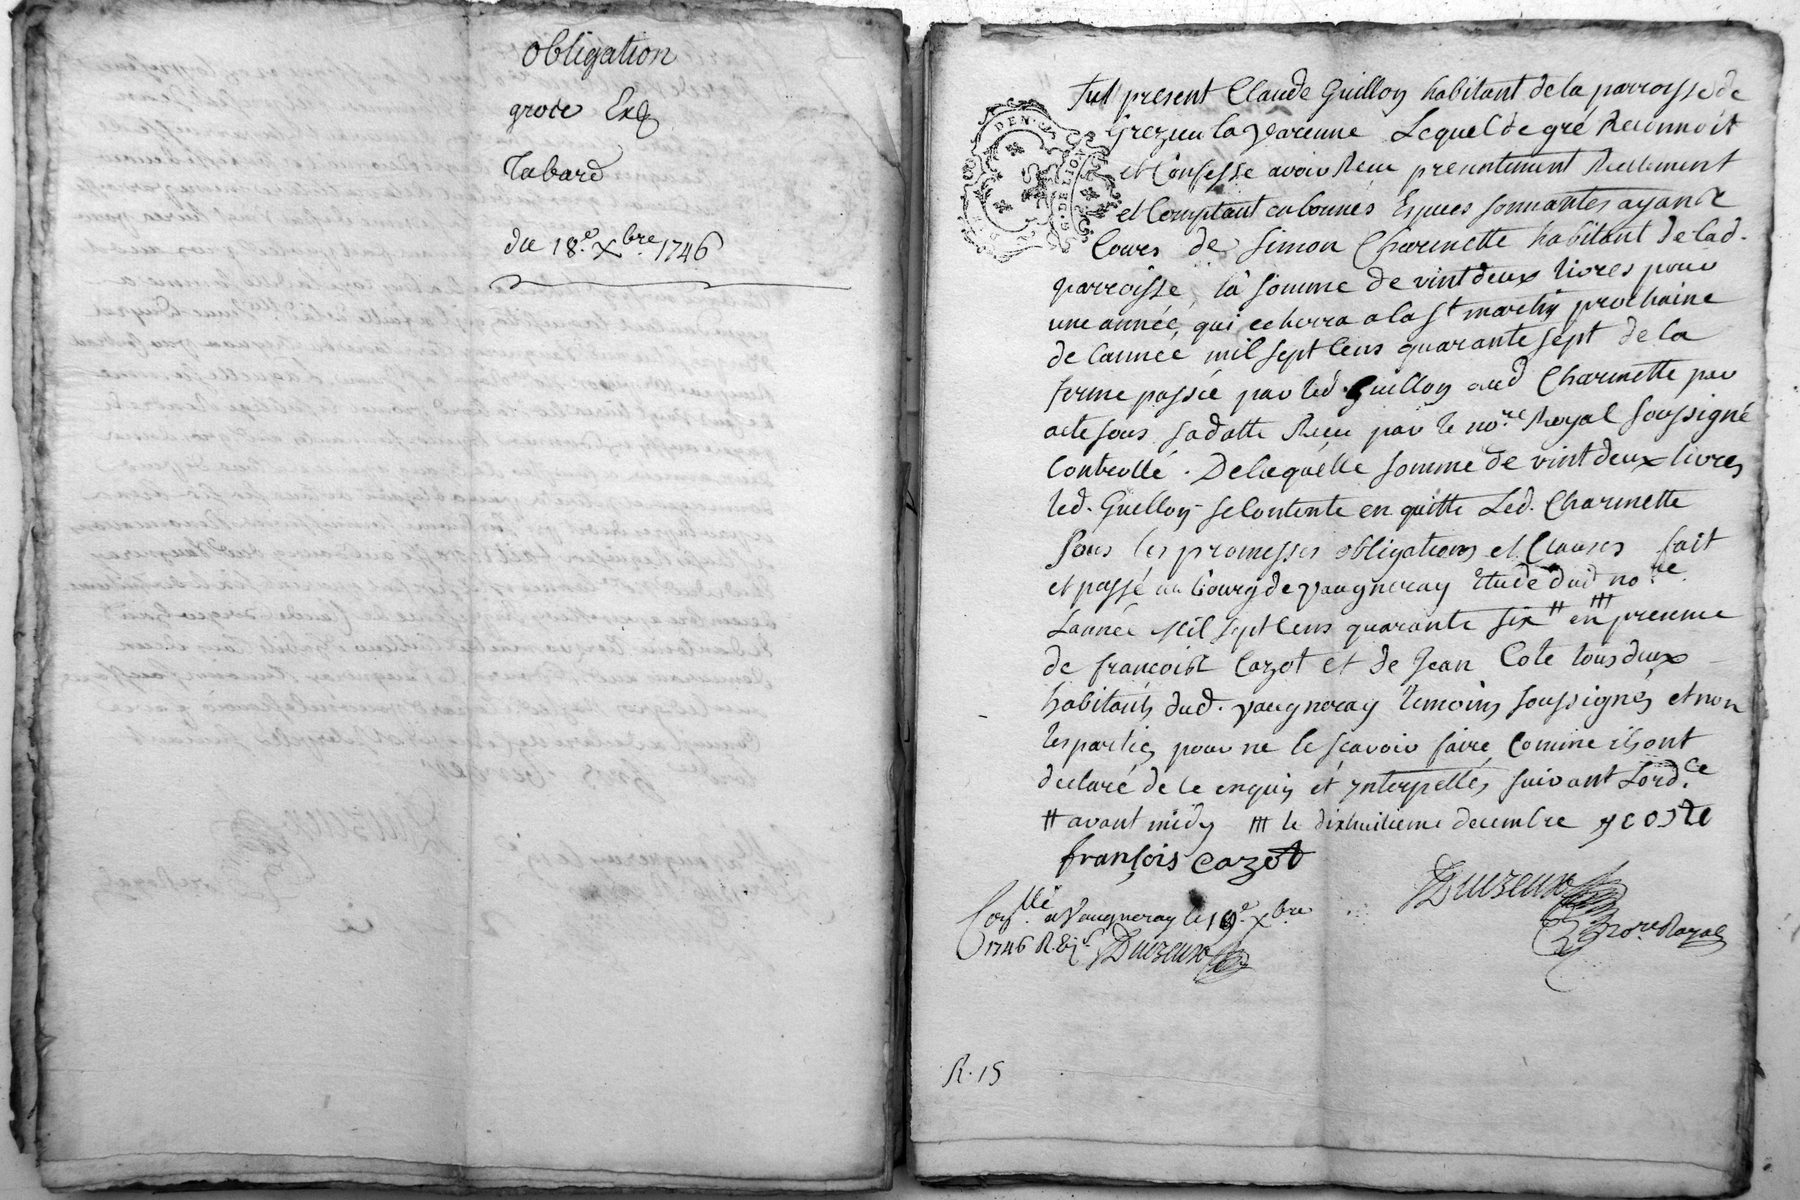 obligation
grote Exp
Tabard
du 18.e Xbre 1746
GEN. DE LION
Fut present Claude Guillon habitant de la parroisse de
Grezieu la Varenne Lequel de gré Reconnoit
et Confesse avoir Receu presentement Reellement
et Comptant en bonnes Especes sonnantes ayant
Cours de Simon Charmette habitant de lad.
parroisse, la somme de vint deux livres pour
une année, qui echerra a la St martin prochaine
de l'année mil sept Cens quarante sept de la
ferme passée par led. Guillon aud Charmette par
acte sous sa datte Receu par le nore. Royal soussigné
Controllé. De laquelle somme de vint deux livres
led. Guillon se Contente en quitte Led. Charmette
Sous les promesses obligations et Clauses fait
et passé au bourg de Vaugneray Etude dud nore.
L'année Mil sept Cens quarante six # en presence
de francoist Cazot et de Jean Cote tous deux
habitants dud. Vaugneray temoins soussignés et non
les parties pour ne le sçavoir faire Comme ils ont
declaré de ce enquis et ynterpellés suivant L'ordce.
# avant midy ## le dixhuitieme decembre J coste
françois cazot
Duzeux
nore. Royal
Conllé. a Vaugneray le 19.e Xbre
1746 R. Duzeux
R. 15